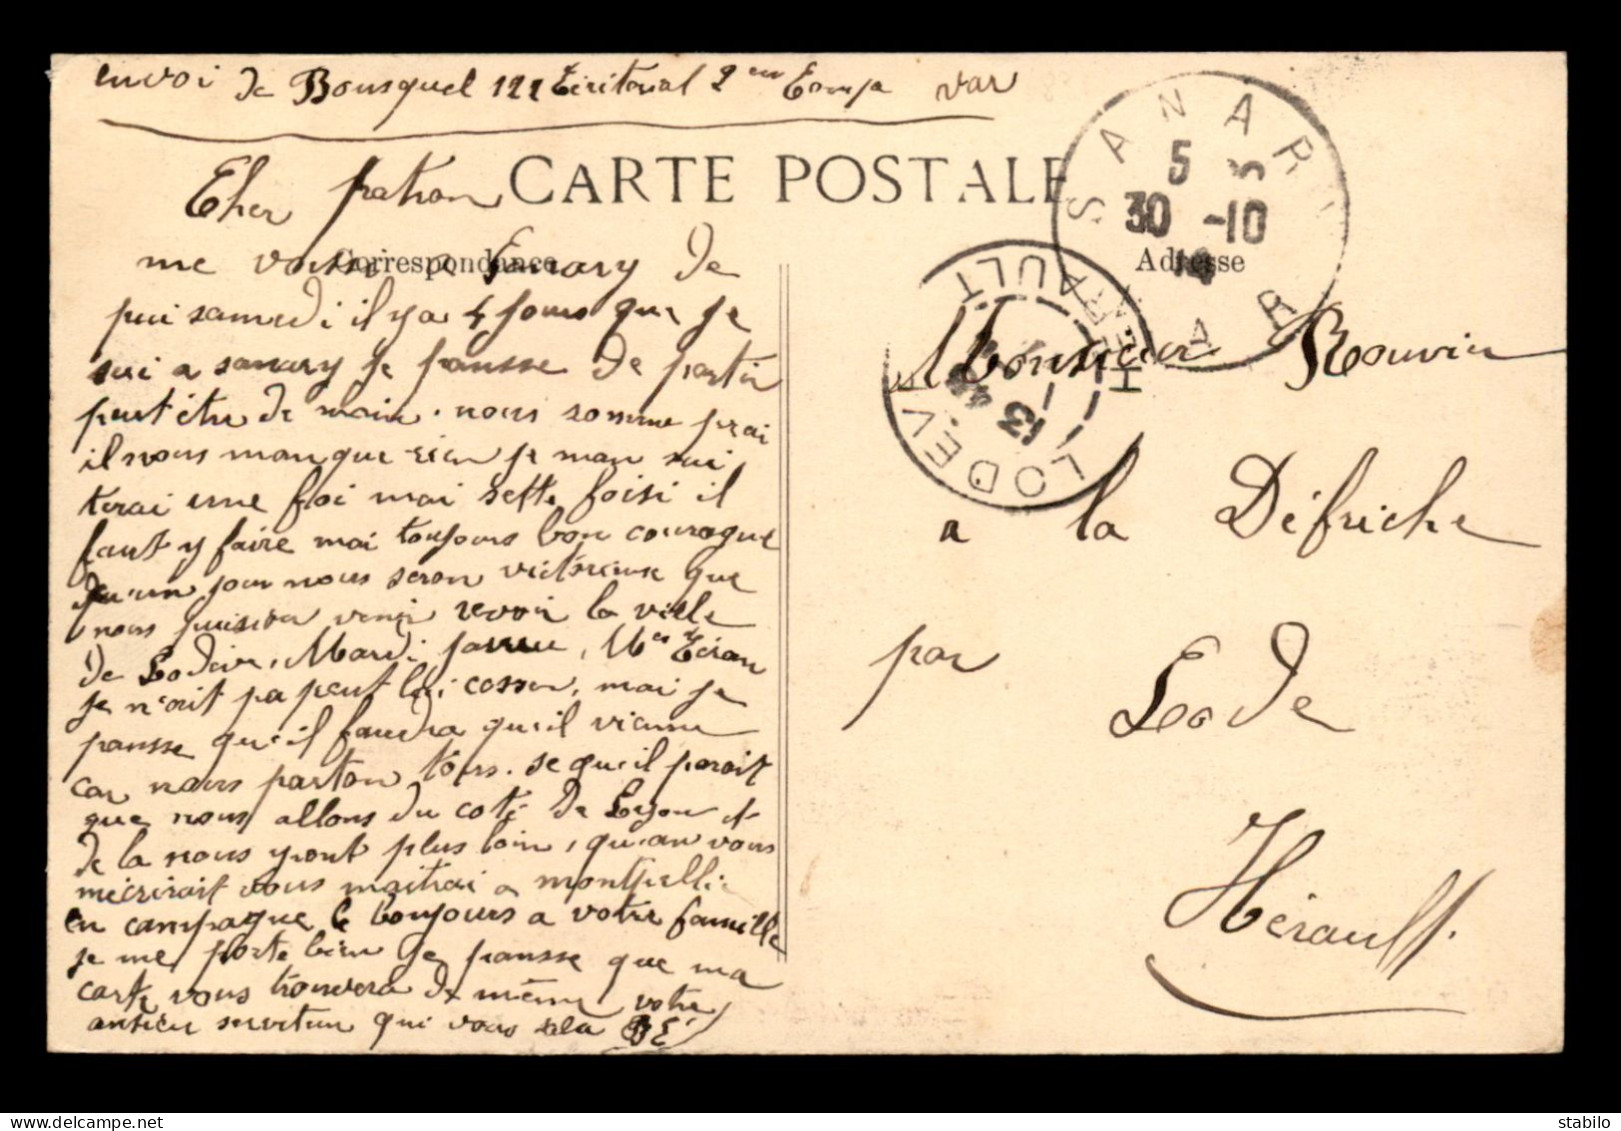 envoi de Bousquel 122 Teritorial 2eme Compa var
CARTE POSTALE
Cher patron
Correspondance
Adresse
me voissi a Sanary de
pui samedi il y a 4 jours que je
sui a sanary je pansse de partir
peut être de main. nous somme prai
il nous manque rien je man sui
terai une foi mai sette foisi il
faut y faire mai toujours bon courague
qu'un jour nous seron victorieux que
nous puission venir revoir la ville
de Lodève, Mardi
je n'ait pa peut lui cosser, mai je
pansse qu'il faudra qu'il vienne
car nous parton tous. se qu'il parait
que nous allons du coté de Lyon et
de la nous yront plus loin, quan vous
mécrirait vous maitrai a montpellié
en campagne toujours a votre famille
je me porte bien je pansse que ma
carte vous trouvera de même votre
ansien serviteur qui vous sala BE
SANARY
5
30 -10
VAR
LODEVE
HERAULT
13
Monsieur Rouvier
a la Défriche
par Lode
Hérault.
delcampe.net
stabilo